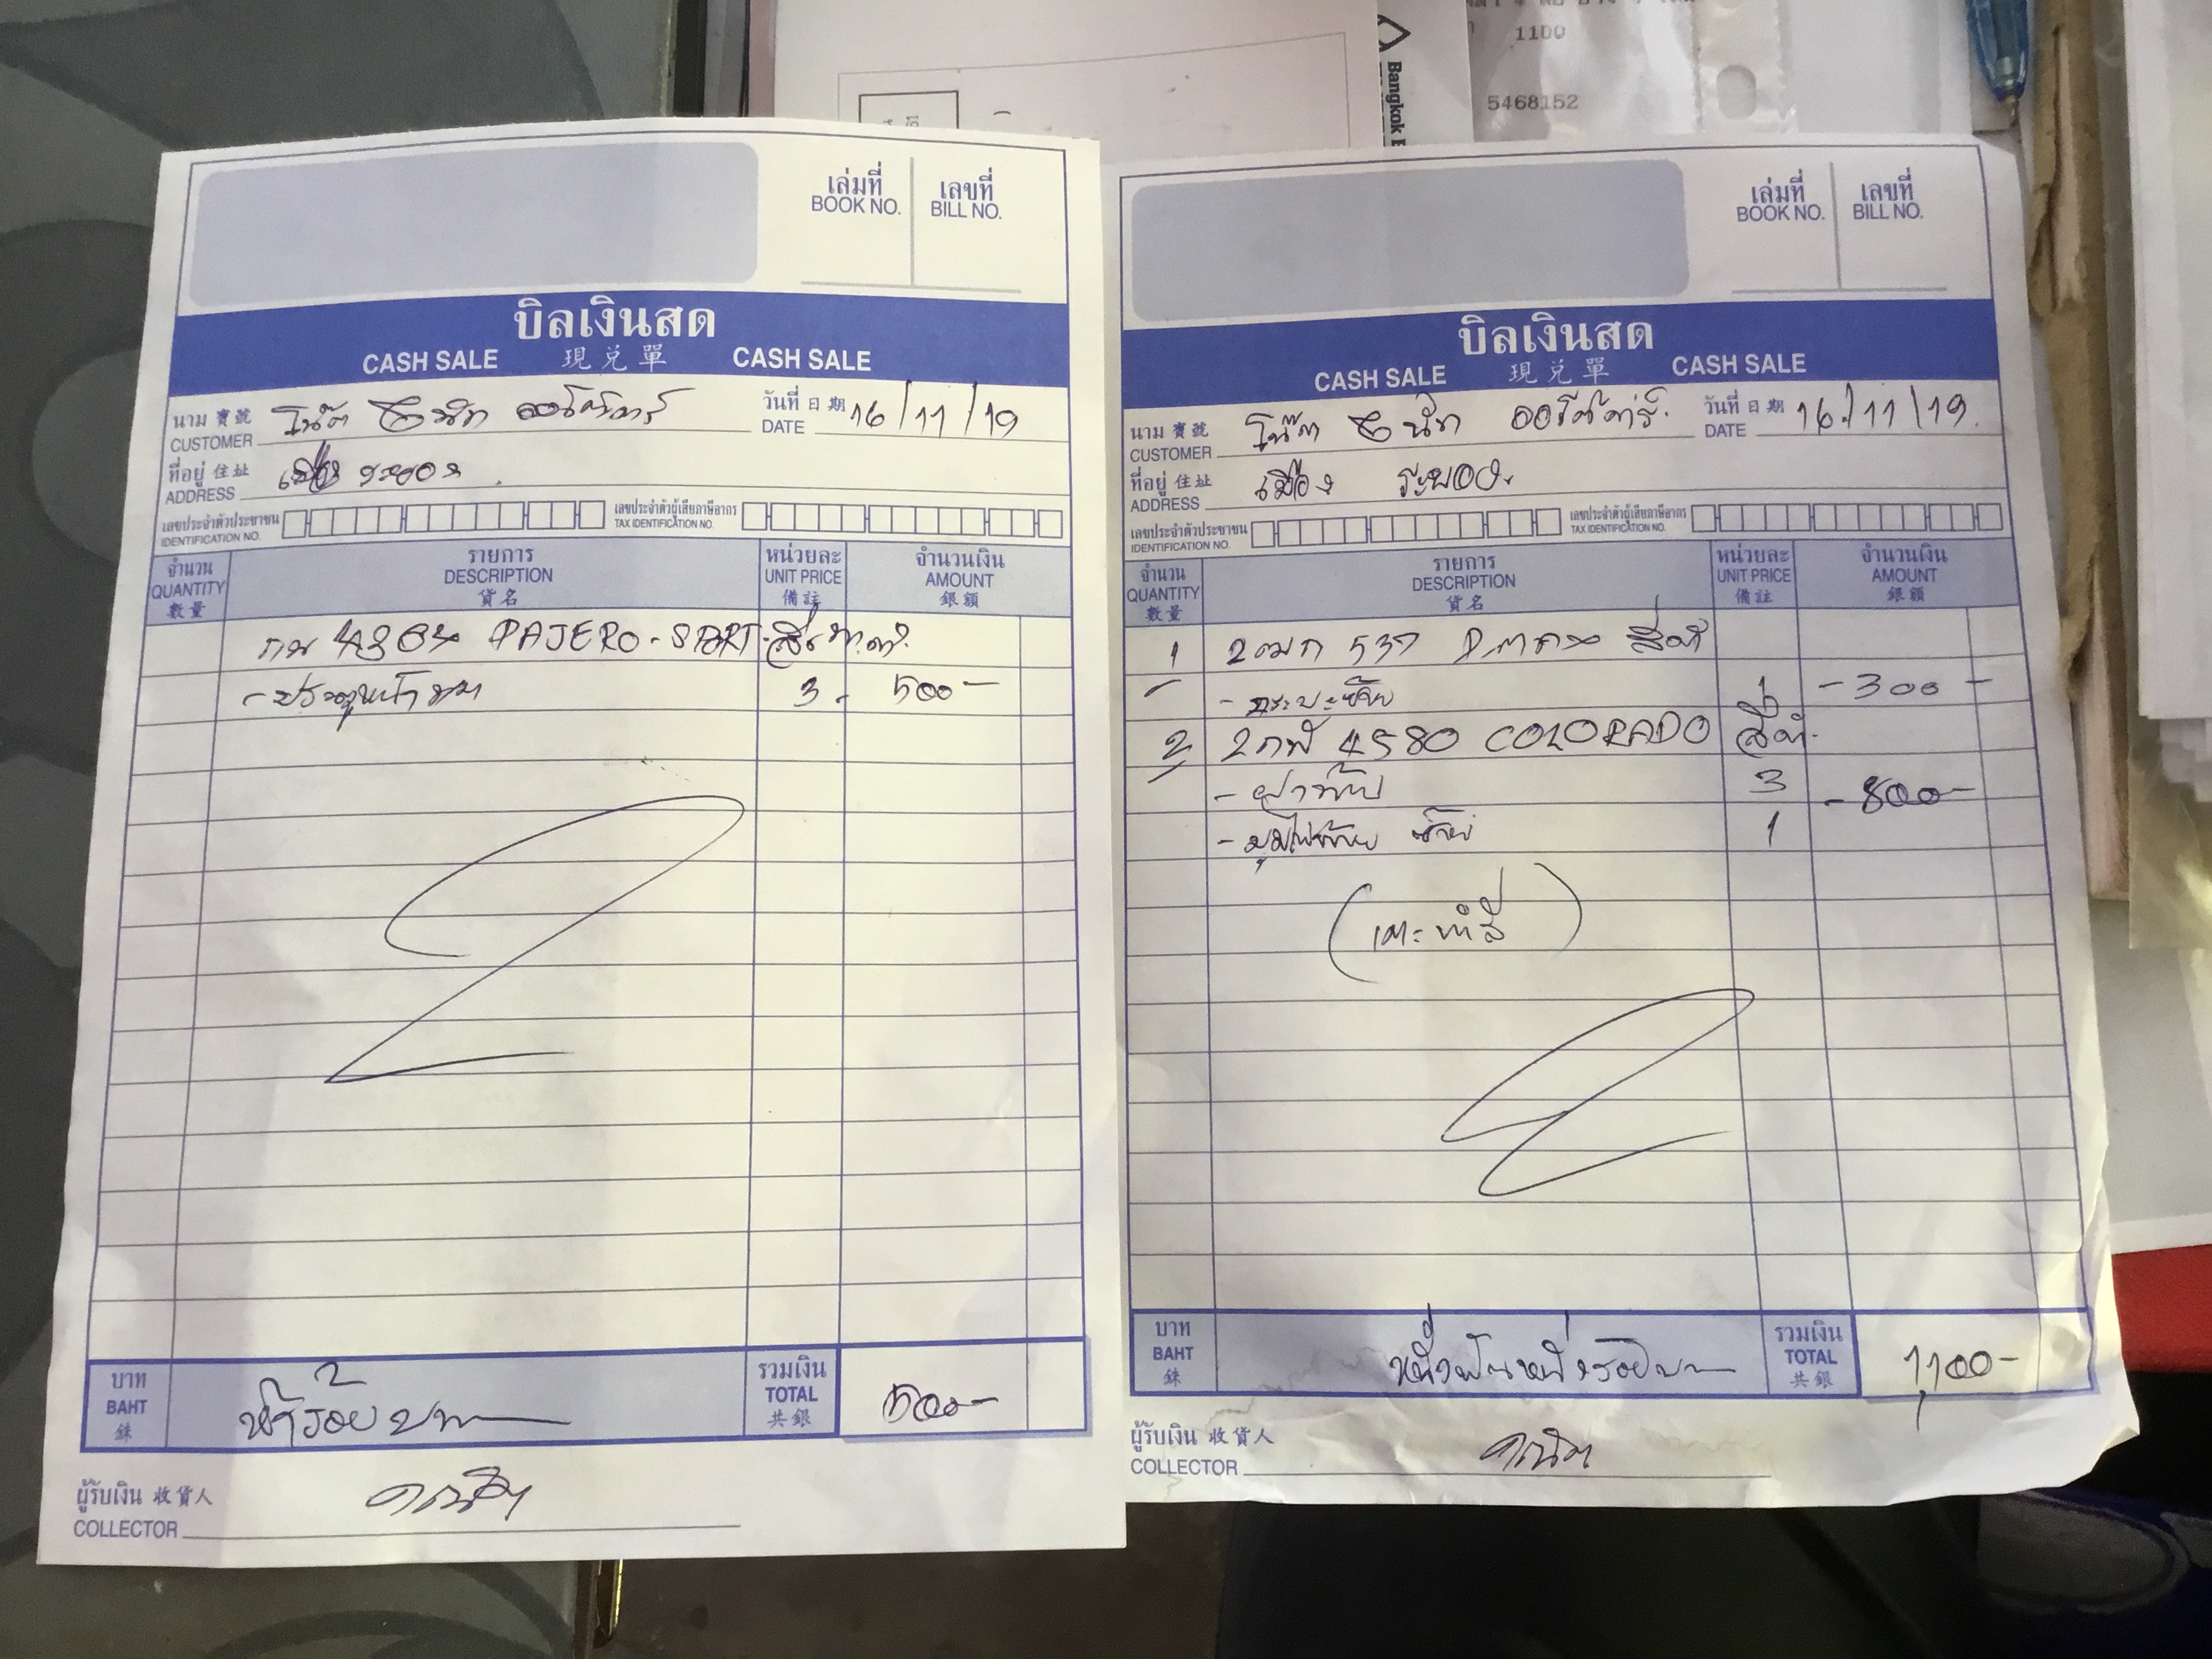 1100
5468152
Bangkok
เล่มที่ เลขที่
BOOK NO. BILL NO.
บิลเงินสด
CASH SALE 現兌單 CASH SALE
นาม 寶號 โน๊ต วันที่ 日期 16/11/19
CUSTOMER DATE
ที่อยู่ 住址 เมือง ระยอง
ADDRESS
เลขประจำตัวประชาชน เลขประจำตัวผู้เสียภาษีอากร
IDENTIFICATION NO. TAX IDENTIFICATION NO.
จำนวน รายการ หน่วยละ จำนวนเงิน
QUANTITY DESCRIPTION UNIT PRICE AMOUNT
數量 貨名 備註 銀額
กน 4364 PAJERO-SPORT
3 500-
บาท รวมเงิน
BAHT ห้าร้อยบาท TOTAL 500-
銖 共銀
ผู้รับเงิน 收貨人
COLLECTOR
เล่มที่ เลขที่
BOOK NO. BILL NO.
บิลเงินสด
CASH SALE 現兌單 CASH SALE
นาม 寶號 โน๊ต วันที่ 日期 16/11/19
CUSTOMER DATE
ที่อยู่ 住址 เมือง ระยอง
ADDRESS
เลขประจำตัวประชาชน เลขประจำตัวผู้เสียภาษีอากร
IDENTIFICATION NO. TAX IDENTIFICATION NO.
จำนวน รายการ หน่วยละ จำนวนเงิน
QUANTITY DESCRIPTION UNIT PRICE AMOUNT
數量 貨名 備註 銀額
1 2ฒก 537 สีดำ
- กระบะซ้าย 1 -300-
2 2กฬ 4580 COLORADO สีดำ
- ฝาท้าย 3 -800-
- มุมไฟท้าย ซ้าย 1
(เคาะทำสี)
บาท รวมเงิน
BAHT หนึ่งพันหนึ่งร้อยบาท TOTAL 1,100-
銖 共銀
ผู้รับเงิน 收貨人
COLLECTOR